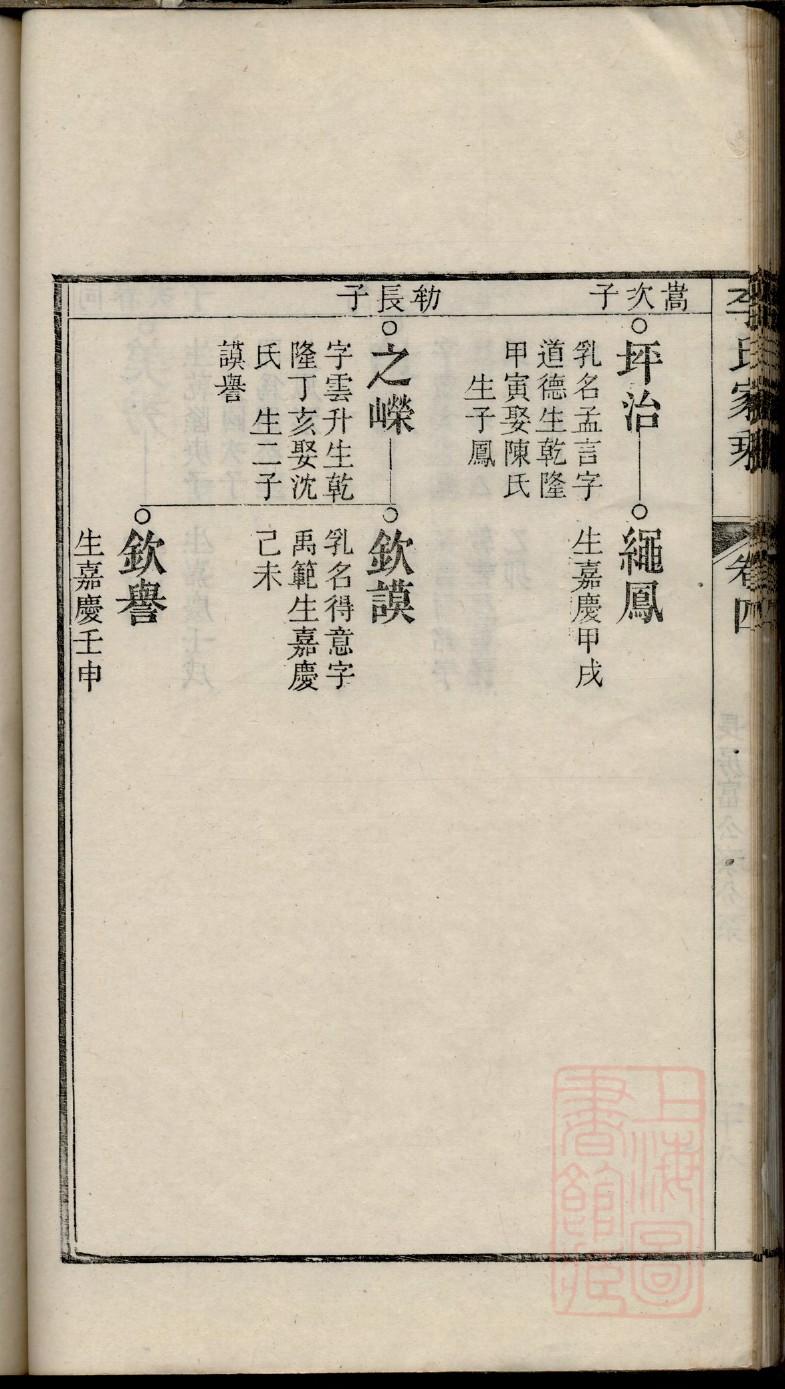 李氏家乘
卷四
嵩次子
坪治
乳名孟言字
道德生乾隆
甲寅娶陳氏
生子鳳
繩鳳
生嘉慶甲戌
勑長子
之嶸
字雲升生乾
隆丁亥娶沈
氏 生二子
謨譽
欽謨
乳名得意字
禹範生嘉慶
己未
欽譽
生嘉慶壬申
上海圖
書館藏